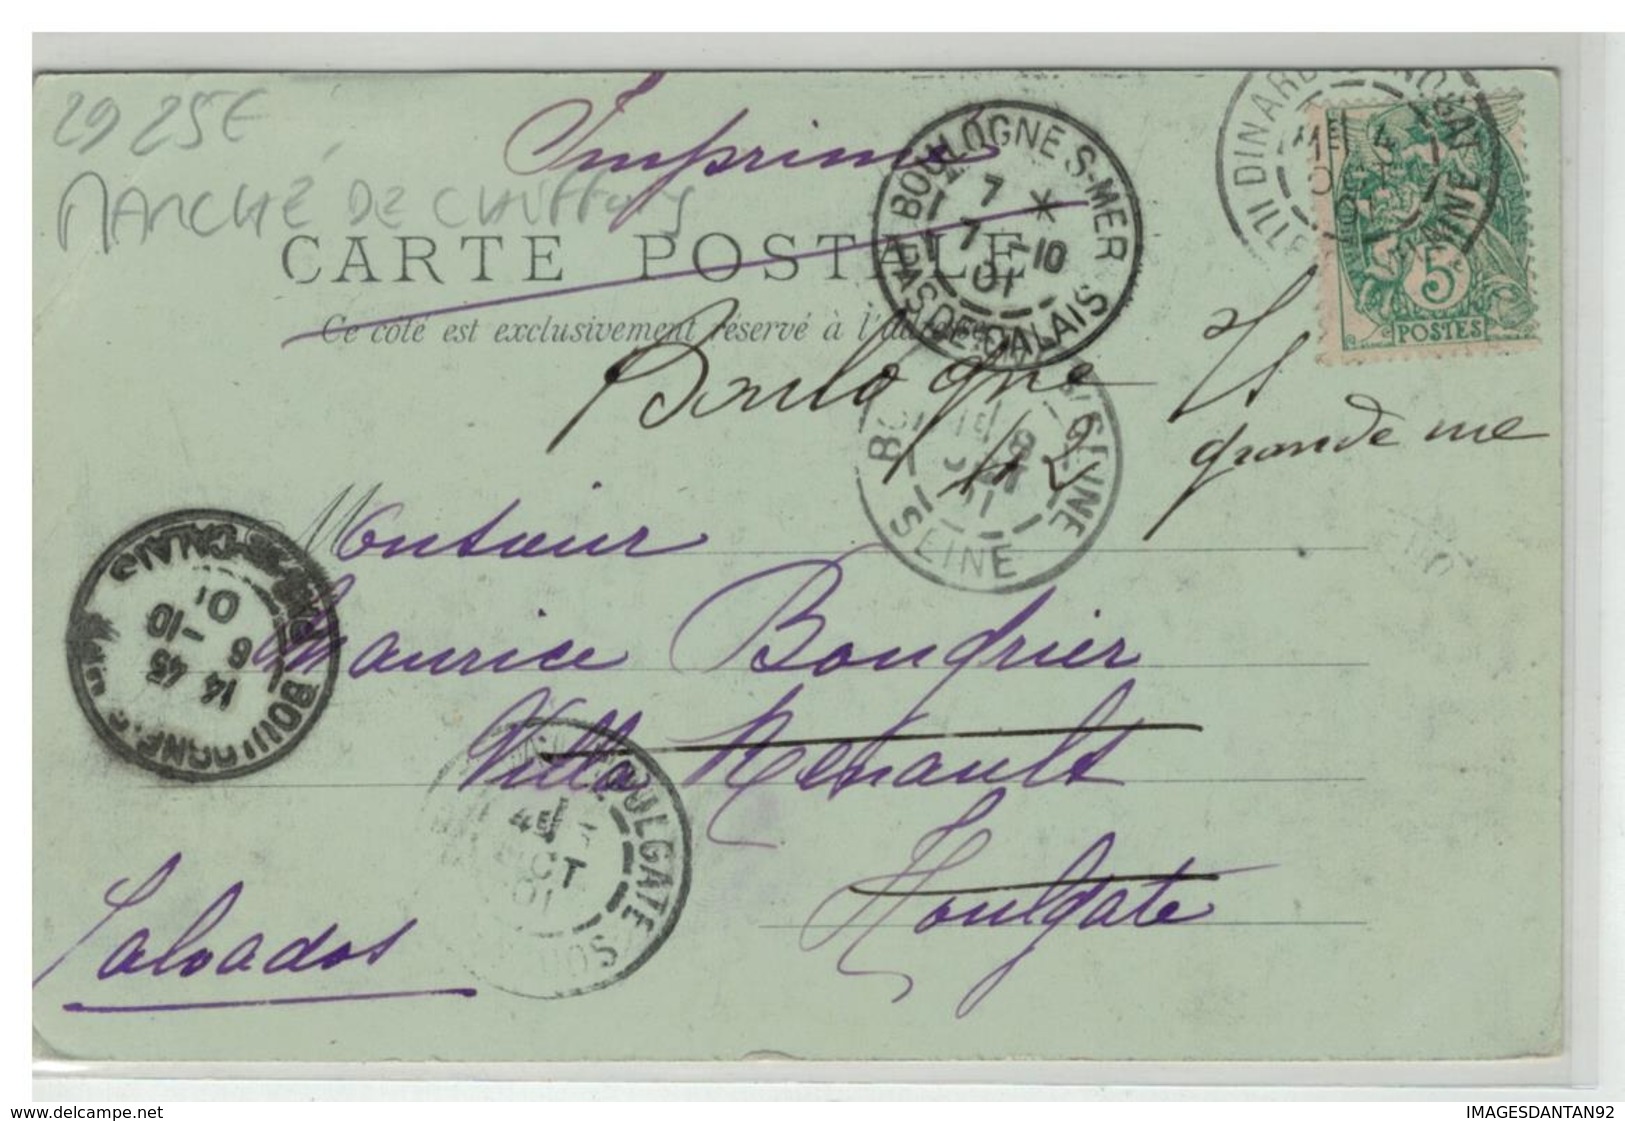 29 25€
MARCHÉ DE CHIFFONS
Imprimé
CARTE POSTALE
Ce côté est exclusivement réservé à l'adresse
BOULOGNE S-MER
7 *
7 -10
01
PAS-DE-CALAIS
DINARD
ILLE
VILAINE
5
POSTES
Boulogne
S/
42 grande rue
SEINE
SEINE
Monsieur
Maurice Boudrier
Villa Renault
Houlgate
Calvados
BOULOGNE-S-MER
14 45
6 -10
01
PAS-DE-CALAIS
HOULGATE
4E
OCT
01
www.delcampe.net
IMAGESDANTAN92